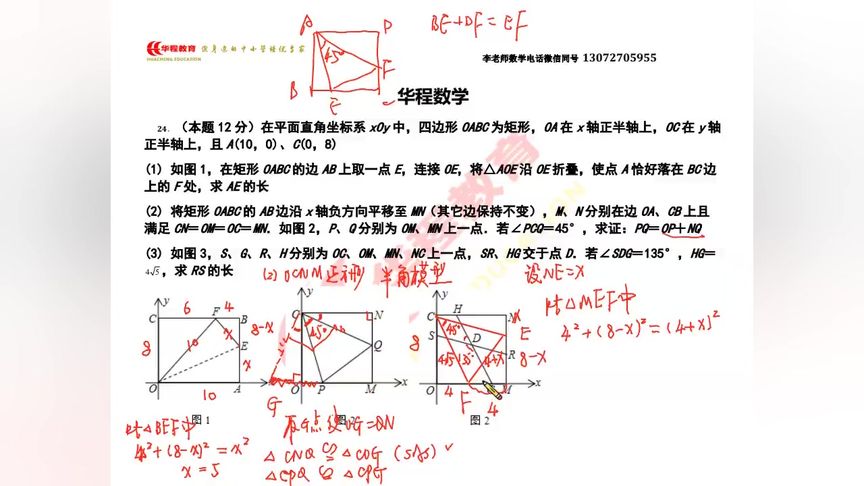 A D BE+DF=EF
45°
F
B E
华程教育
HUACHENG EDUCATION
李老师数学电话微信同号 13072705955
华程数学
24. (本题 12 分)在平面直角坐标系 xOy 中,四边形 OABC 为矩形,OA 在 x 轴正半轴上,OC 在 y 轴
正半轴上,且 A(10,0)、C(0,8)
(1) 如图 1,在矩形 OABC 的边 AB 上取一点 E,连接 OE,将△AOE 沿 OE 折叠,使点 A 恰好落在 BC 边
上的 F 处,求 AE 的长
(2) 将矩形 OABC 的 AB 边沿 x 轴负方向平移至 MN(其它边保持不变),M、N 分别在边 OA、CB 上且
满足 CN=OM=OC=MN.如图 2,P、Q 分别为 OM、MN 上一点.若∠PCQ=45°,求证:PQ=OP+NQ
(3) 如图 3,S、G、R、H 分别为 OC、OM、MN、NC 上一点,SR、HG 交于点 D.若∠SDG=135°,HG=
4√5,求 RS 的长
(2) OCNM 正方形 半角模型 设NE=x
Rt△MEF中
4²+(8-x)²=(4+x)²
y 6 4
C F B
8 10 x 8-x
E
x
O A x
10
图 1
y
C N
45°
Q
G O P M x
图 2
y
C H N x
45° E
S D
8 R 8-x
4√5 135° 4+x
O 4 F M x
4
图 2
Rt△BEF中
4²+(8-x)²=x²
x=5
OG=QN
△CNQ≌△COG (SAS)
△CPQ≌△CPG